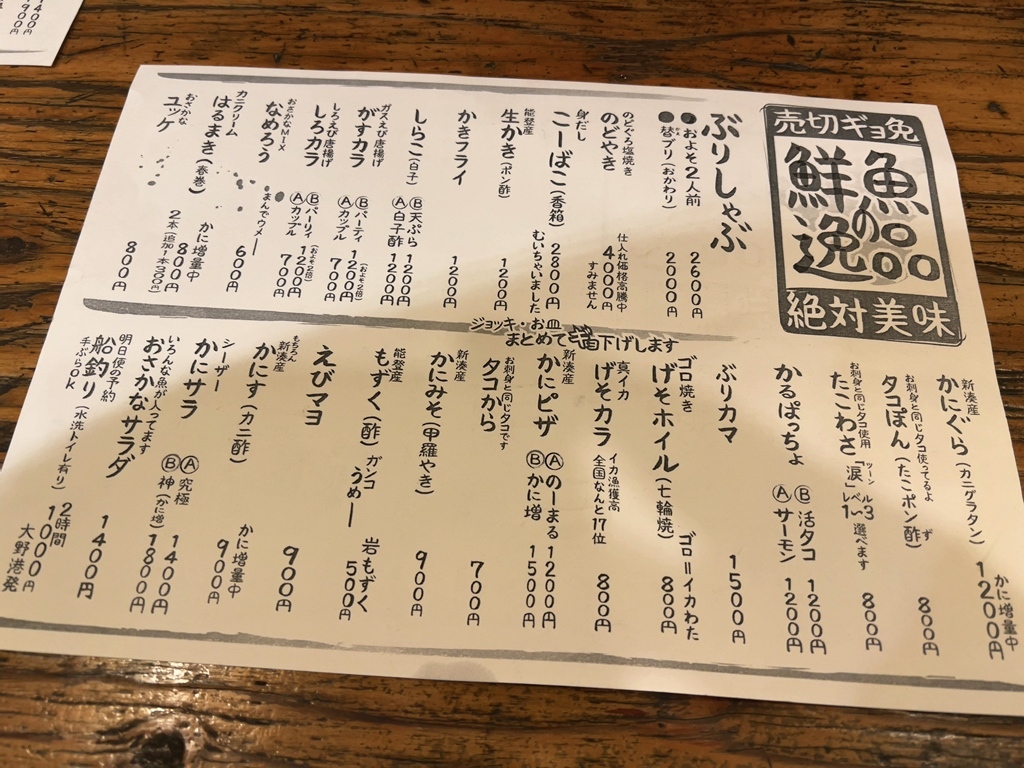 売切ギョ免
鮮魚の逸品
絶対美味
ぶりしゃぶ
●およそ2人前 2600円
●替ブリ(おかわり) 2000円
のどぐろ塩焼き
のどやき 4000円
仕入れ価格高騰中
すみません
身だし
こーばこ(香箱) 2800円
むいちゃいました
能登産
生かき(ポン酢) 1200円
かきフライ 1200円
しらこ(白子)
Ⓑ天ぷら 1200円
Ⓐ白子酢 1200円
ガスえび唐揚げ
がすカラ
Ⓑパーティ 1200円(およそ2倍)
Ⓐカップル 700円
しろえび唐揚げ
しろカラ
Ⓑパーリィ 1200円(およそ2倍)
Ⓐカップル 700円
おさかなMIX
なめろう まんでウメー 600円
カニクリーム
はるまき(春巻) かに増量中
2本 800円
(追加1本300円)
おさかな
ユッケ 800円
ジョッキ・お皿
まとめてど面下げします
新湊産
かにぐら(カニグラタン) かに増量中
1200円
お刺身と同じタコ使ってるよ
タコぽん(たこポン酢) 800円
お刺身と同じタコ使用
たこわさ 「涙」レベル1〜3選べます 800円
かるぱっちょ
Ⓑ活タコ 1200円
Ⓐサーモン 1200円
ぶりカマ 1500円
ゴロ焼き
げそホイル(七輪焼) 800円
ゴロ=イカわた
真イカ
げそカラ 800円
イカ漁獲高
全国なんと17位
新湊産
かにピザ
Ⓐのーまる 1200円
Ⓑかに増 1500円
お刺身と同じタコです
タコから 700円
新湊産
かにみそ(甲羅やき) 900円
能登産
もずく(酢) ガンコうめー 岩もずく
500円
えびマヨ 900円
もちろん
新湊産
かにす(カニ酢) かに増量中
900円
シーザー
かにサラ
Ⓐ究極 1400円
Ⓑ神(かに増) 1800円
いろんな魚が入ってます
おさかなサラダ 1400円
明日便の予約
船釣り(水洗トイレ有り) 2時間
1000円
手ぶらok
大野港発